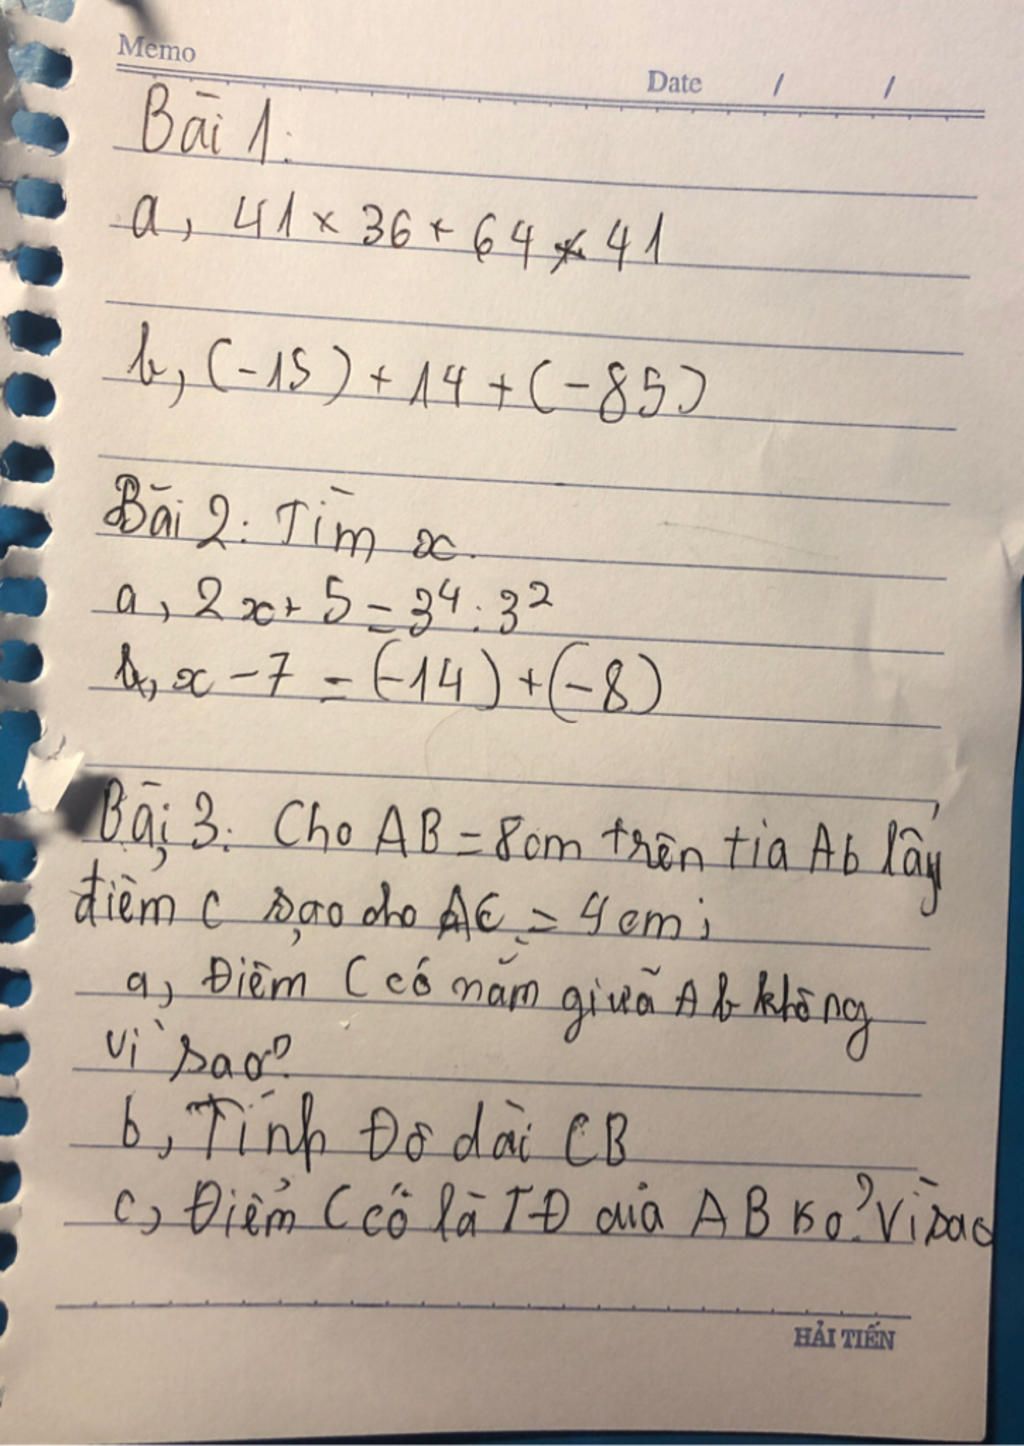 Memo
Date / /
Bài 1:
a, 41 × 36 + 64 × 41
b, (-15) + 14 + (-85)
Bài 2: Tìm x.
a, 2x + 5 = 3⁴ : 3²
b, x - 7 = (-14) + (-8)
Bài 3: Cho AB = 8cm trên tia Ab lấy
điểm C sao cho AC = 4cm;
a, Điểm C có nằm giữa Ab không
vì sao?
b, Tính Độ dài CB
c, Điểm C có là TĐ của AB ko? Vì sao
HẢI TIẾN